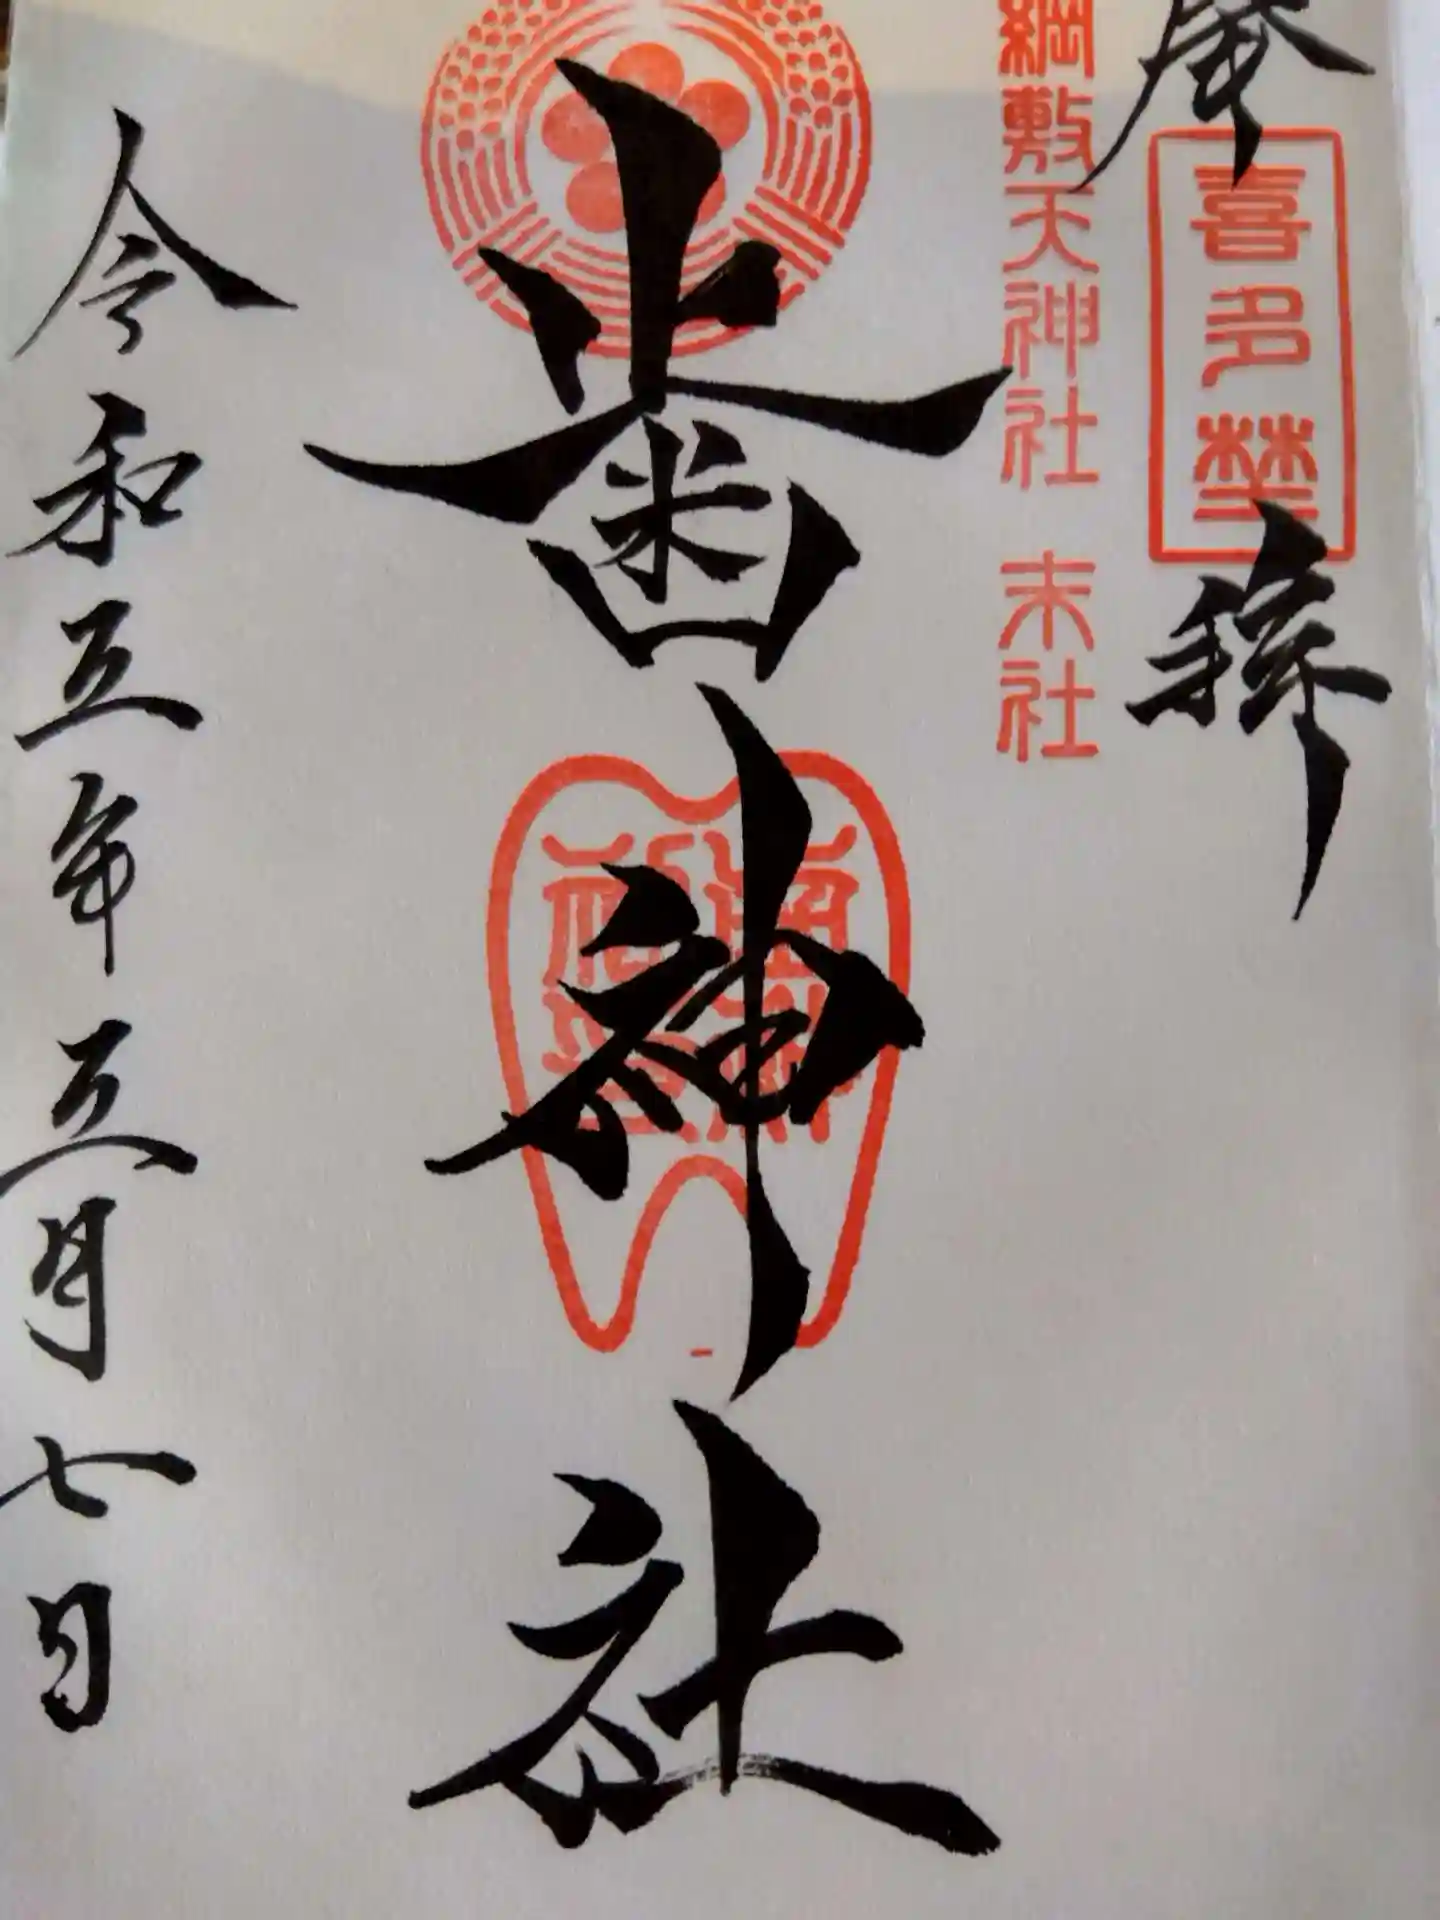 奉拝
喜多埜
綱敷天神社 末社
歯神社
歯神社印
令和五年五月七日